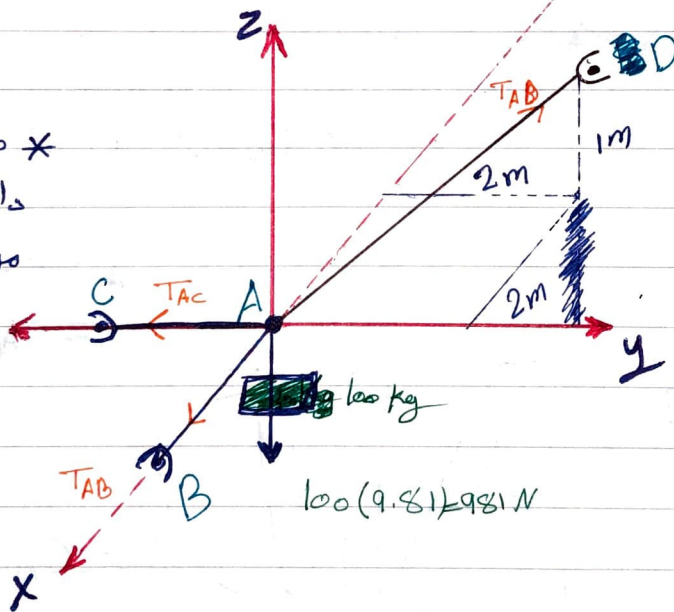 Z
D
T_AB
1m
2m
C
T_AC
A
2m
y
100 kg
T_AB
B
100(9.81)=981 N
X